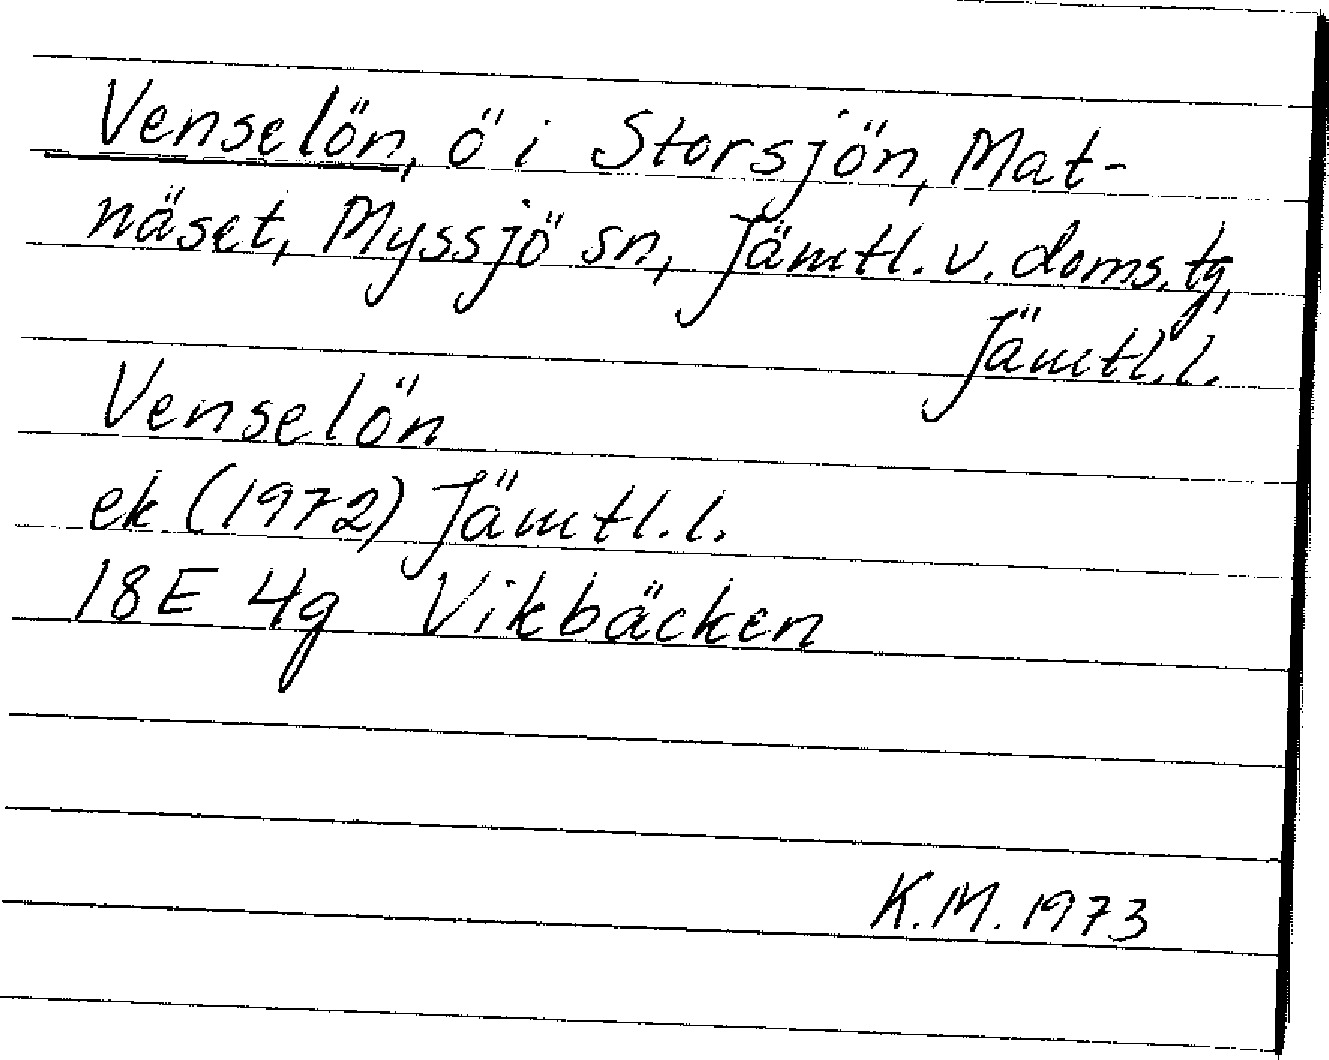 Venselön, ö i Storsjön, Mat-
näset, Myssjö sn, Jämtl. v. doms. tg,
Jämtl. l.
Venselön
ek (1972) Jämtl. l.
18E 4g Vikbäcken
K.M. 1973